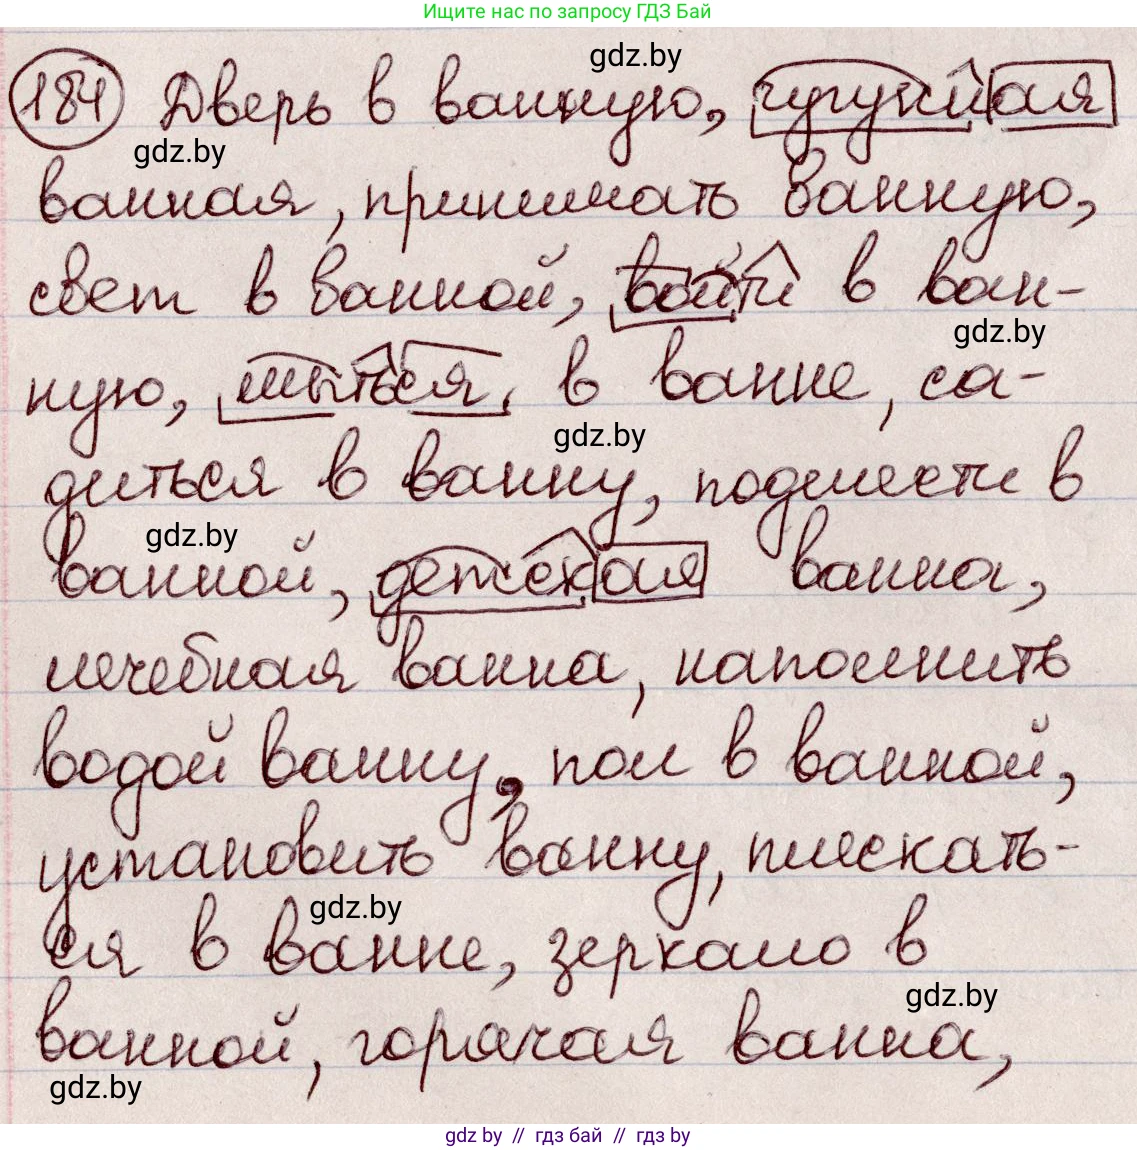 Ищите нас по запросу ГДЗ Бай
gdz.by
184 Дверь в ванную, чугунная
gdz.by
ванная, принимать ванную,
свет в ванной, войти в ван-
gdz.by
ную, мыться, в ванне, са-
gdz.by
диться в ванну, подмести в
gdz.by
ванной, детская ванна,
лечебная ванна, наполнить
водой ванну, пол в ванной,
установить ванну, плескать-
gdz.by
ся в ванне, зеркало в
gdz.by
ванной, горячая ванна,
gdz.by
gdz by // гдз бай // гдз by